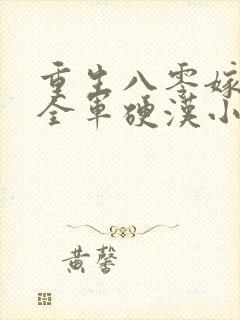 重生八零嫁
全军硬汉小
黄馨